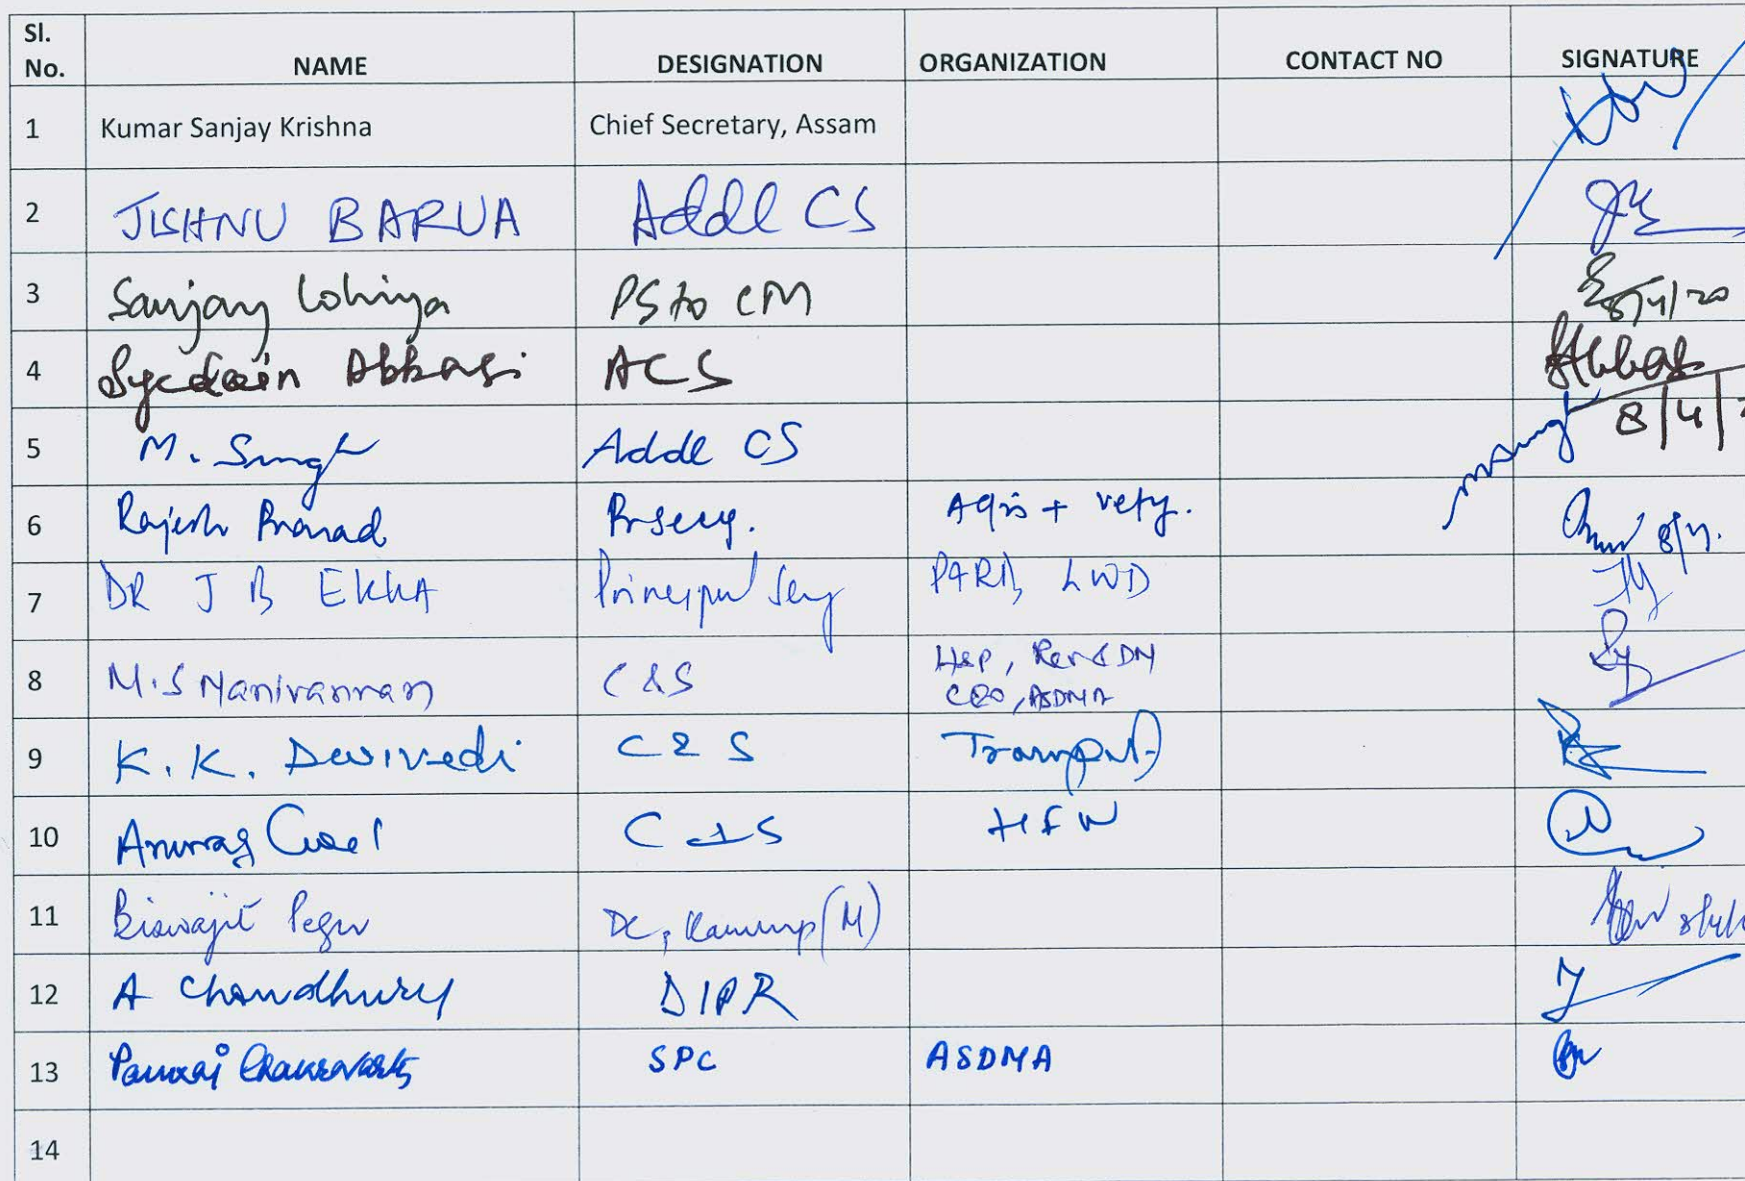 Sl. No. NAME DESIGNATION ORGANIZATION CONTACT NO SIGNATURE
1 Kumar Sanjay Krishna Chief Secretary, Assam
2 JISHNU BARUA Addl CS
3 Sanjay Lohiya PS to CM 8/4/20
4 Syedain Abbasi ACS 8/4/
5 M. Singh Addl CS
6 Rajesh Prasad Pr secy. Agri + vety. 8/4.
7 DR J B EKKA Principal Secy LWD
8 M.S Manivannan C & S H&P, Rev & DM
CEO, ASDMA
9 K. K. Dwivedi C & S Transport
10 Anurag Goel C & S HFW
11 Biswajit Pegu DC, Kamrup (M)
12 A Chowdhury DIPR
13 Pankaj Chakravarty SPC ASDMA
14